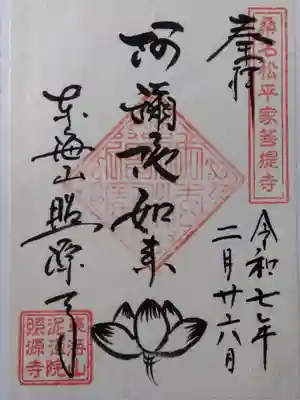 桑名松平家菩提寺
奉拝
令和七年
二月廿六日
阿彌陀如来
東海山照源寺
東海山
泥洹院
照源寺